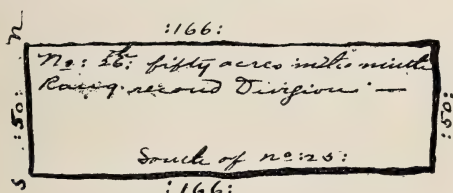 :166:
n
No: 26: fifty acres in the ninth
Rang second Division —
:50:
:50:
South of no: 25:
S
:166: